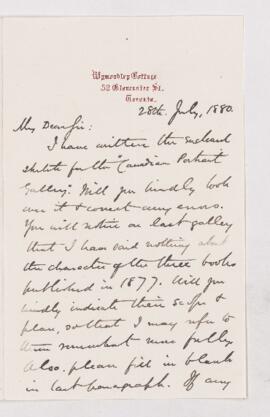 Wymondley Cottage
52 Gloucester St.
Toronto.
28th. July, 1880.
My Dear Sir:
I have written the enclosed
sketch for the "Canadian Portrait
Gallery." Will you kindly look
over it & correct any errors.
You will notice on last galley
that I have said nothing about
the character of the three books
published in 1877. Will you
kindly indicate their scope &
plan, so that I may refer to
them somewhat more fully.
Also, please fill in blank
in last paragraph. If any